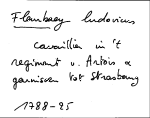 Flambaey ludovicus
cavaillier in 't
regiment v. Artois a
garnisoen tot Strasbourg
1788-25